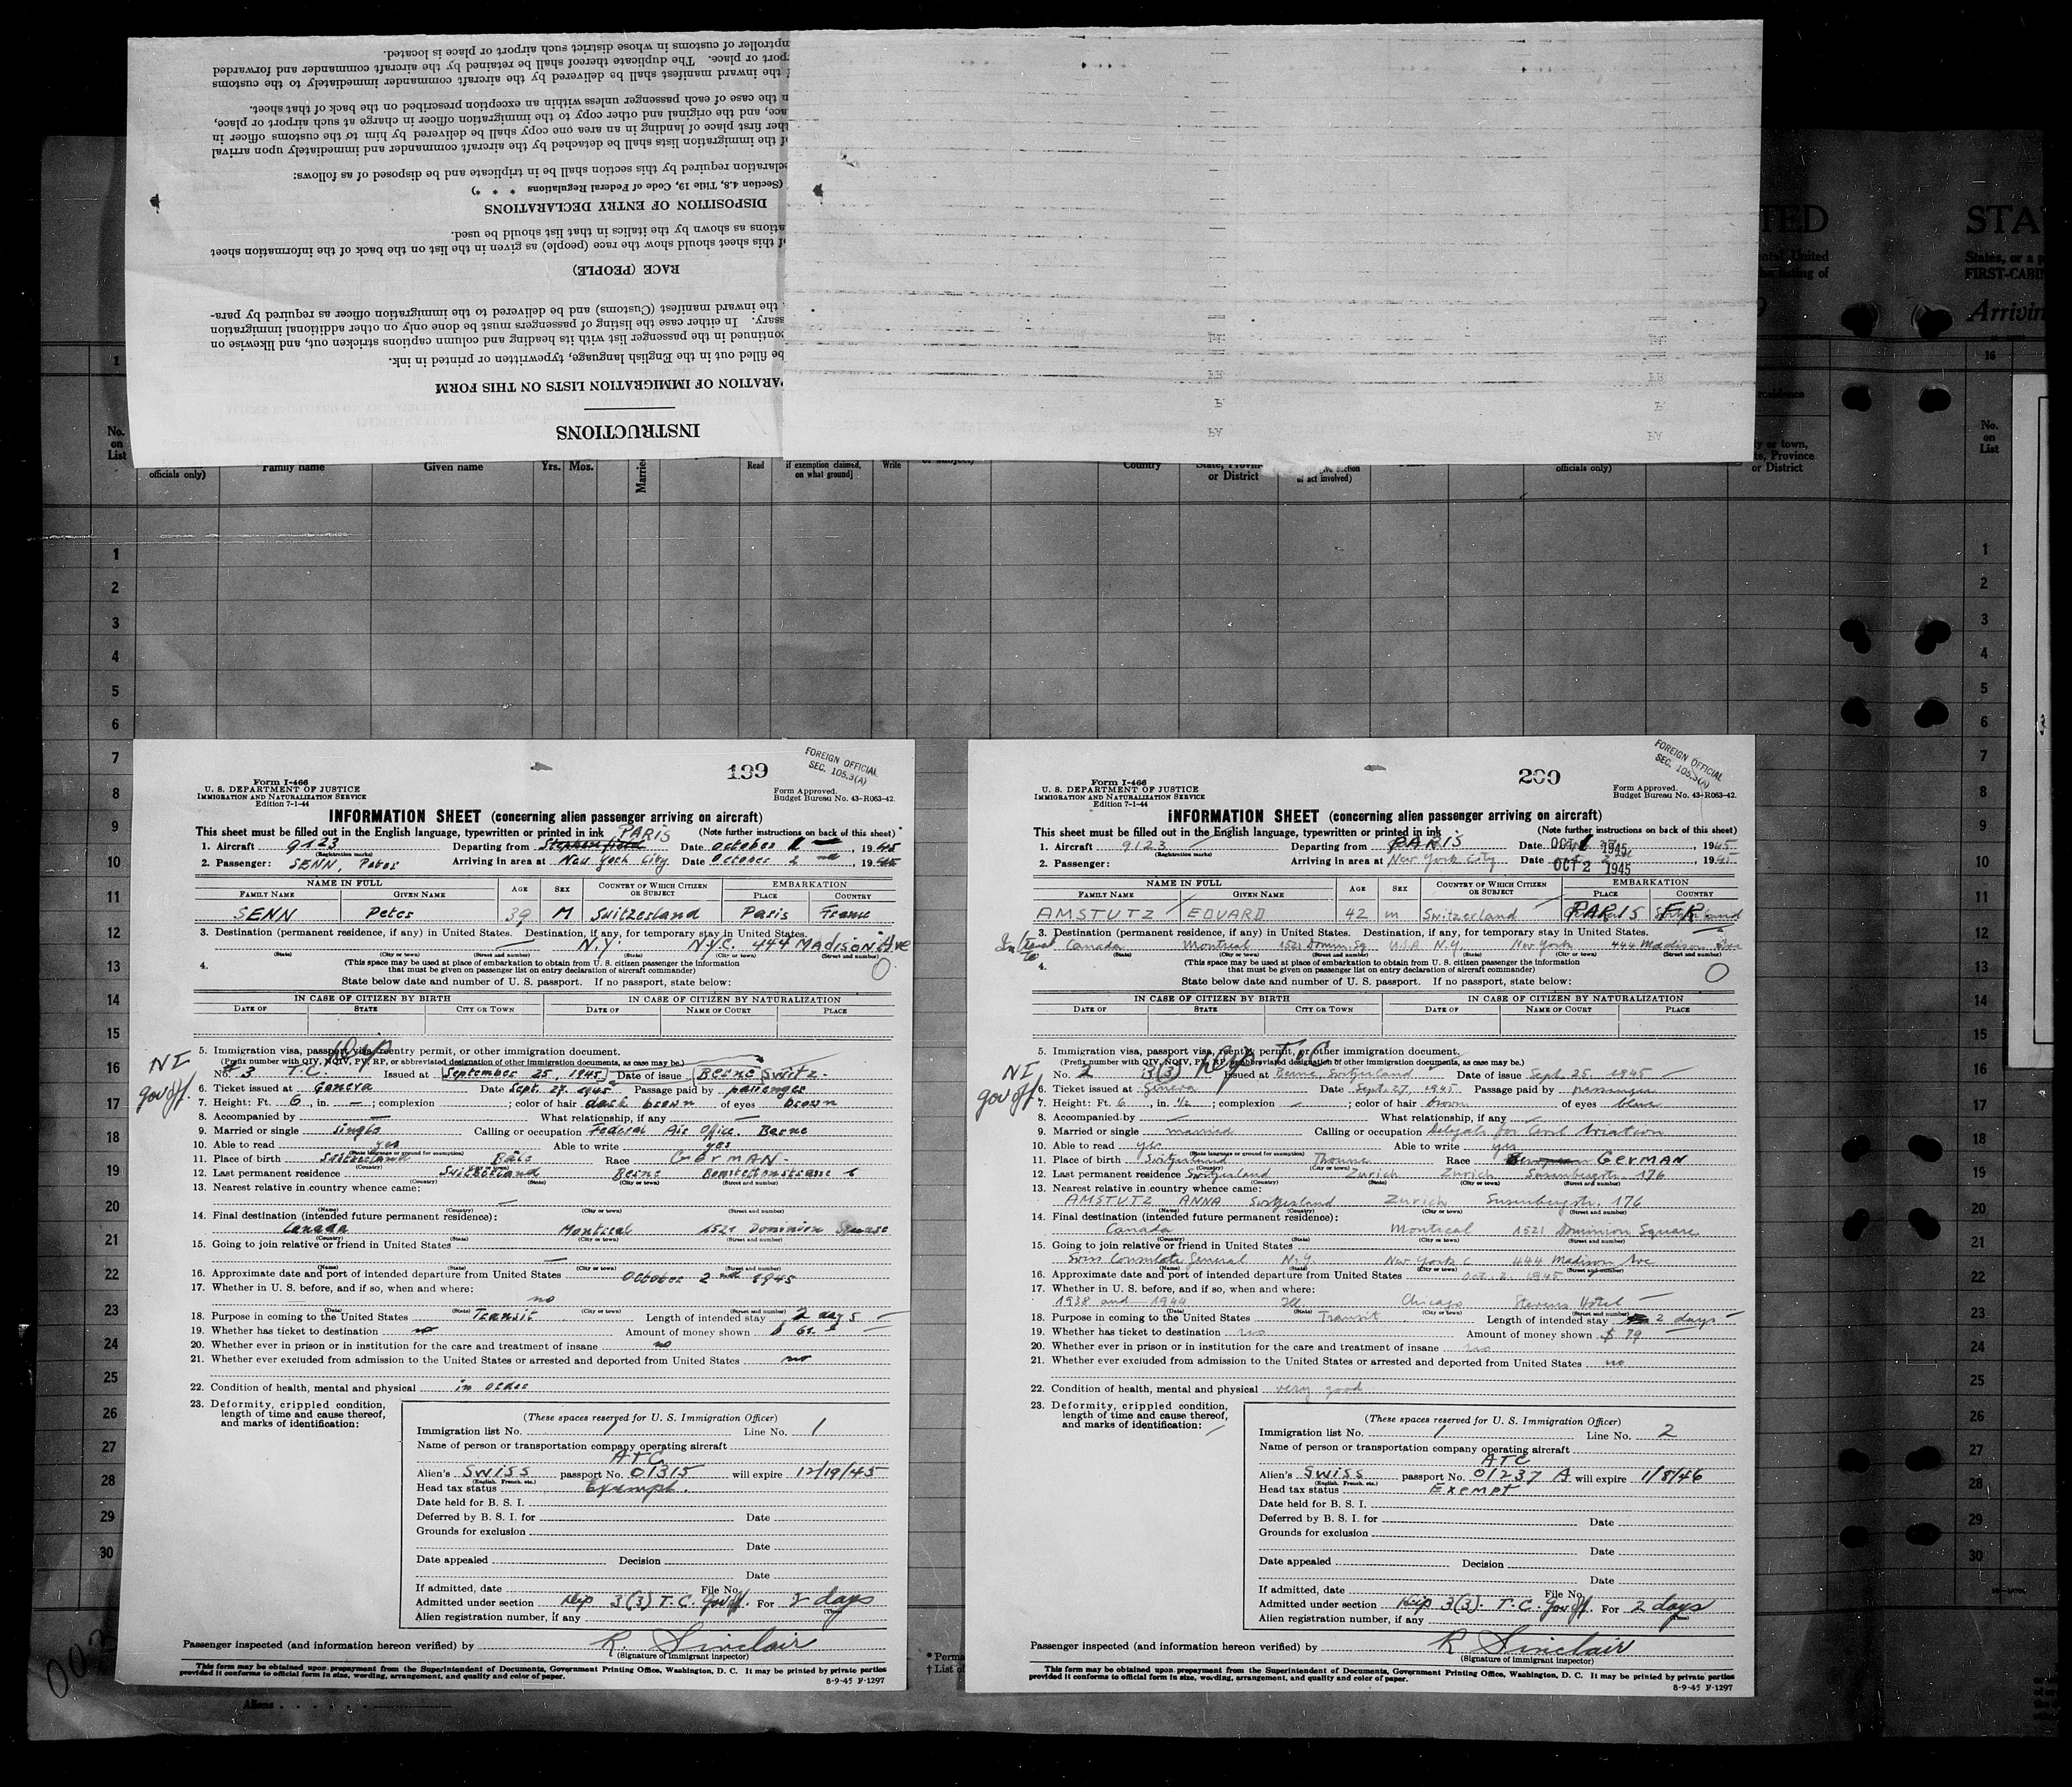 INSTRUCTIONS
PARATION OF IMMIGRATION LISTS ON THIS FORM
be filled out in the English language, typewritten or printed in ink.
continued in the passenger list with its heading and column captions stricken out, and likewise on
ssary. In either case the listing of passengers must be done only on other additional immigration
the inward manifest (Customs) and be delivered to the immigration officer as required by para-
RACE (PEOPLE)
of this sheet should show the race (people) as given in the list on the back of the information sheet
ations as shown by the italics in that list should be used.
DISPOSITION OF ENTRY DECLARATIONS
(Section 4.8, Title 19, Code of Federal Regulations * * *)
claration required by this section shall be in triplicate and be disposed of as follows:
of the immigration lists shall be detached by the aircraft commander and immediately upon arrival
ther first place of landing in an area one copy shall be delivered by him to the customs officer in
ace, and the original and other copy to the immigration officer in charge at such airport or place,
n the case of each passenger unless within an exception prescribed on the back of that sheet.
f the inward manifest shall be delivered by the aircraft commander immediately to the customs
port or place. The duplicate thereof shall be retained by the aircraft commander and forwarded
mptroller of customs in whose district such airport or place is located.
TED STA
States, or a p
FIRST-CABI
Arrivin
No. on List
officials only) Family name Given name Yrs. Mos. Read if exemption claimed, on what ground] Write Country or District officials only) or District
1
2
3
4
5
6
7
8
9
10
11
12
13
14
15
16
17
18
19
20
21
22
23
24
25
26
27
28
29
30
199
FOREIGN OFFICIAL
SEC. 105.3(A)
Form I-466
U. S. DEPARTMENT OF JUSTICE
IMMIGRATION AND NATURALIZATION SERVICE
Edition 7-1-44
Form Approved.
Budget Bureau No. 43-R063-42.
INFORMATION SHEET (concerning alien passenger arriving on aircraft)
This sheet must be filled out in the English language, typewritten or printed in ink (Note further instructions on back of this sheet)
PARIS
1. Aircraft 9123 Departing from Stephenfield Date October 1, 1945
(Registration marks)
2. Passenger: SENN, Peter Arriving in area at New York City Date October 2nd, 1945
NAME IN FULL AGE SEX COUNTRY OF WHICH CITIZEN OR SUBJECT EMBARKATION
FAMILY NAME GIVEN NAME PLACE COUNTRY
SENN Peter 39 M Switzerland Paris France
3. Destination (permanent residence, if any) in United States. Destination, if any, for temporary stay in United States.
— N.Y. N.Y.C. 444 MADISON Ave
(State) (City or town) (Street and number) (State) (City or town) (Street and number)
4. (This space may be used at place of embarkation to obtain from U. S. citizen passenger the information
that must be given on passenger list on entry declaration of aircraft commander)
0
State below date and number of U. S. passport. If no passport, state below:
IN CASE OF CITIZEN BY BIRTH IN CASE OF CITIZEN BY NATURALIZATION
DATE OF STATE CITY OR TOWN DATE OF NAME OF COURT PLACE
5. Immigration visa, passport visa, reentry permit, or other immigration document.
(Prefix number with QIV, NQIV, PV, RP, or abbreviated designation of other immigration documents, as case may be.)
NI
gov off.
No. #3 T.C. Issued at September 25, 1945 Date of issue Berne Switz.
6. Ticket issued at Geneva Date Sept. 27. 1945 Passage paid by passenger
7. Height: Ft. 6, in. —; complexion ; color of hair dark brown of eyes brown
8. Accompanied by — What relationship, if any —
9. Married or single single Calling or occupation Federal Air Office. Berne
10. Able to read yes Able to write yes
(State language or ground for exemption)
11. Place of birth Switzerland Bâle Race GERMAN
(Country) (City or town)
12. Last permanent residence Switzerland Berne
(Country) (State) (City or town) (Street and number)
13. Nearest relative in country whence came: —
(Name) (Country) (City or town) (Street and number)
14. Final destination (intended future permanent residence):
Canada Montreal 1521 Dominion Square
(Country) (State) (City or town) (Street and number)
15. Going to join relative or friend in United States —
(Name) (State) (City or town) (Street and number)
16. Approximate date and port of intended departure from United States October 2nd 1945
17. Whether in U. S. before, and if so, when and where:
no
(Date) (State) (City or town) (Street and number)
18. Purpose in coming to the United States Transit Length of intended stay 2 days
19. Whether has ticket to destination no Amount of money shown $ 61.-
20. Whether ever in prison or in institution for the care and treatment of insane no
21. Whether ever excluded from admission to the United States or arrested and deported from United States no
22. Condition of health, mental and physical in order
23. Deformity, crippled condition,
length of time and cause thereof,
and marks of identification:
(These spaces reserved for U. S. Immigration Officer)
Immigration list No. 1 Line No. 1
Name of person or transportation company operating aircraft
ATC
Alien's SWISS passport No. 01315 will expire 12/19/45
(English, French, etc.)
Head tax status Exempt.
Date held for B. S. I.
Deferred by B. S. I. for Date
Grounds for exclusion
Date
Date appealed Decision
Date
If admitted, date File No.
Admitted under section Dip 3(3) T.C. Gov off. For 2 days
(Time)
Alien registration number, if any
Passenger inspected (and information hereon verified) by R. Sinclair
(Signature of immigrant inspector)
This form may be obtained upon prepayment from the Superintendent of Documents, Government Printing Office, Washington, D. C. It may be printed by private parties
provided it conforms to official form in size, wording, arrangement, and quality and color of paper.
8-9-45 F-1297
200
FOREIGN OFFICIAL
SEC. 105.3(A)
Form I-466
U. S. DEPARTMENT OF JUSTICE
IMMIGRATION AND NATURALIZATION SERVICE
Edition 7-1-44
Form Approved.
Budget Bureau No. 43-R063-42.
INFORMATION SHEET (concerning alien passenger arriving on aircraft)
This sheet must be filled out in the English language, typewritten or printed in ink (Note further instructions on back of this sheet)
1. Aircraft 9123 Departing from PARIS Date OCT 1 1945, 1945
(Registration marks)
2. Passenger: Arriving in area at New York City Date OCT 2 1945, 1945
NAME IN FULL AGE SEX COUNTRY OF WHICH CITIZEN OR SUBJECT EMBARKATION
FAMILY NAME GIVEN NAME PLACE COUNTRY
AMSTUTZ EDUARD 42 m Switzerland PARIS FR
3. Destination (permanent residence, if any) in United States. Destination, if any, for temporary stay in United States.
In transit to Canada Montreal 1521 Domin. Sq. U.S.A. N.Y. New York 444 Maddison Ave
(State) (City or town) (Street and number) (State) (City or town) (Street and number)
4. (This space may be used at place of embarkation to obtain from U. S. citizen passenger the information
that must be given on passenger list on entry declaration of aircraft commander)
0
State below date and number of U. S. passport. If no passport, state below:
IN CASE OF CITIZEN BY BIRTH IN CASE OF CITIZEN BY NATURALIZATION
DATE OF STATE CITY OR TOWN DATE OF NAME OF COURT PLACE
5. Immigration visa, passport visa, reentry permit, or other immigration document.
(Prefix number with QIV, NQIV, PV, RP, or abbreviated designation of other immigration documents, as case may be.)
NI
gov off
No. 2 3(3) Dip T.C Issued at Berne, Switzerland Date of issue Sept. 25. 1945
6. Ticket issued at Geneva Date Sept. 27, 1945 Passage paid by passenger
7. Height: Ft. 6, in. 1/2; complexion —; color of hair brown of eyes blue
8. Accompanied by — What relationship, if any —
9. Married or single married Calling or occupation Delegate for Civil Aviation
10. Able to read yes Able to write yes
(State language or ground for exemption)
11. Place of birth Switzerland Thoune Race European GERMAN
(Country) (City or town)
12. Last permanent residence Switzerland Zurich Zurich Susenbergstr. 176
(Country) (State) (City or town) (Street and number)
13. Nearest relative in country whence came:
AMSTUTZ ANNA Switzerland Zurich Susenbergstr. 176
(Name) (Country) (City or town) (Street and number)
14. Final destination (intended future permanent residence):
Canada Montreal 1521 Dominion Square
(Country) (State) (City or town) (Street and number)
15. Going to join relative or friend in United States
Swiss Consulate General N.Y. New York C 444 Madison Ave
(Name) (State) (City or town) (Street and number)
16. Approximate date and port of intended departure from United States Oct. 2. 1945
17. Whether in U. S. before, and if so, when and where:
1938 and 1944 Ill Chicago Stevens Hotel
(Date) (State) (City or town) (Street and number)
18. Purpose in coming to the United States Transit Length of intended stay 2 days
19. Whether has ticket to destination no Amount of money shown $ 79
20. Whether ever in prison or in institution for the care and treatment of insane no
21. Whether ever excluded from admission to the United States or arrested and deported from United States no
22. Condition of health, mental and physical very good
23. Deformity, crippled condition,
length of time and cause thereof,
and marks of identification: —
(These spaces reserved for U. S. Immigration Officer)
Immigration list No. 1 Line No. 2
Name of person or transportation company operating aircraft
ATC
Alien's Swiss passport No. 01237 A will expire 1/8/46
(English, French, etc.)
Head tax status Exempt
Date held for B. S. I.
Deferred by B. S. I. for Date
Grounds for exclusion
Date
Date appealed Decision
Date
If admitted, date File No.
Admitted under section Dip 3(3). T.C. Gov off. For 2 days
(Time)
Alien registration number, if any
Passenger inspected (and information hereon verified) by R Sinclair
(Signature of immigrant inspector)
This form may be obtained upon prepayment from the Superintendent of Documents, Government Printing Office, Washington, D. C. It may be printed by private parties
provided it conforms to official form in size, wording, arrangement, and quality and color of paper.
8-9-45 F-1297
* Perma
† List of
Aliens